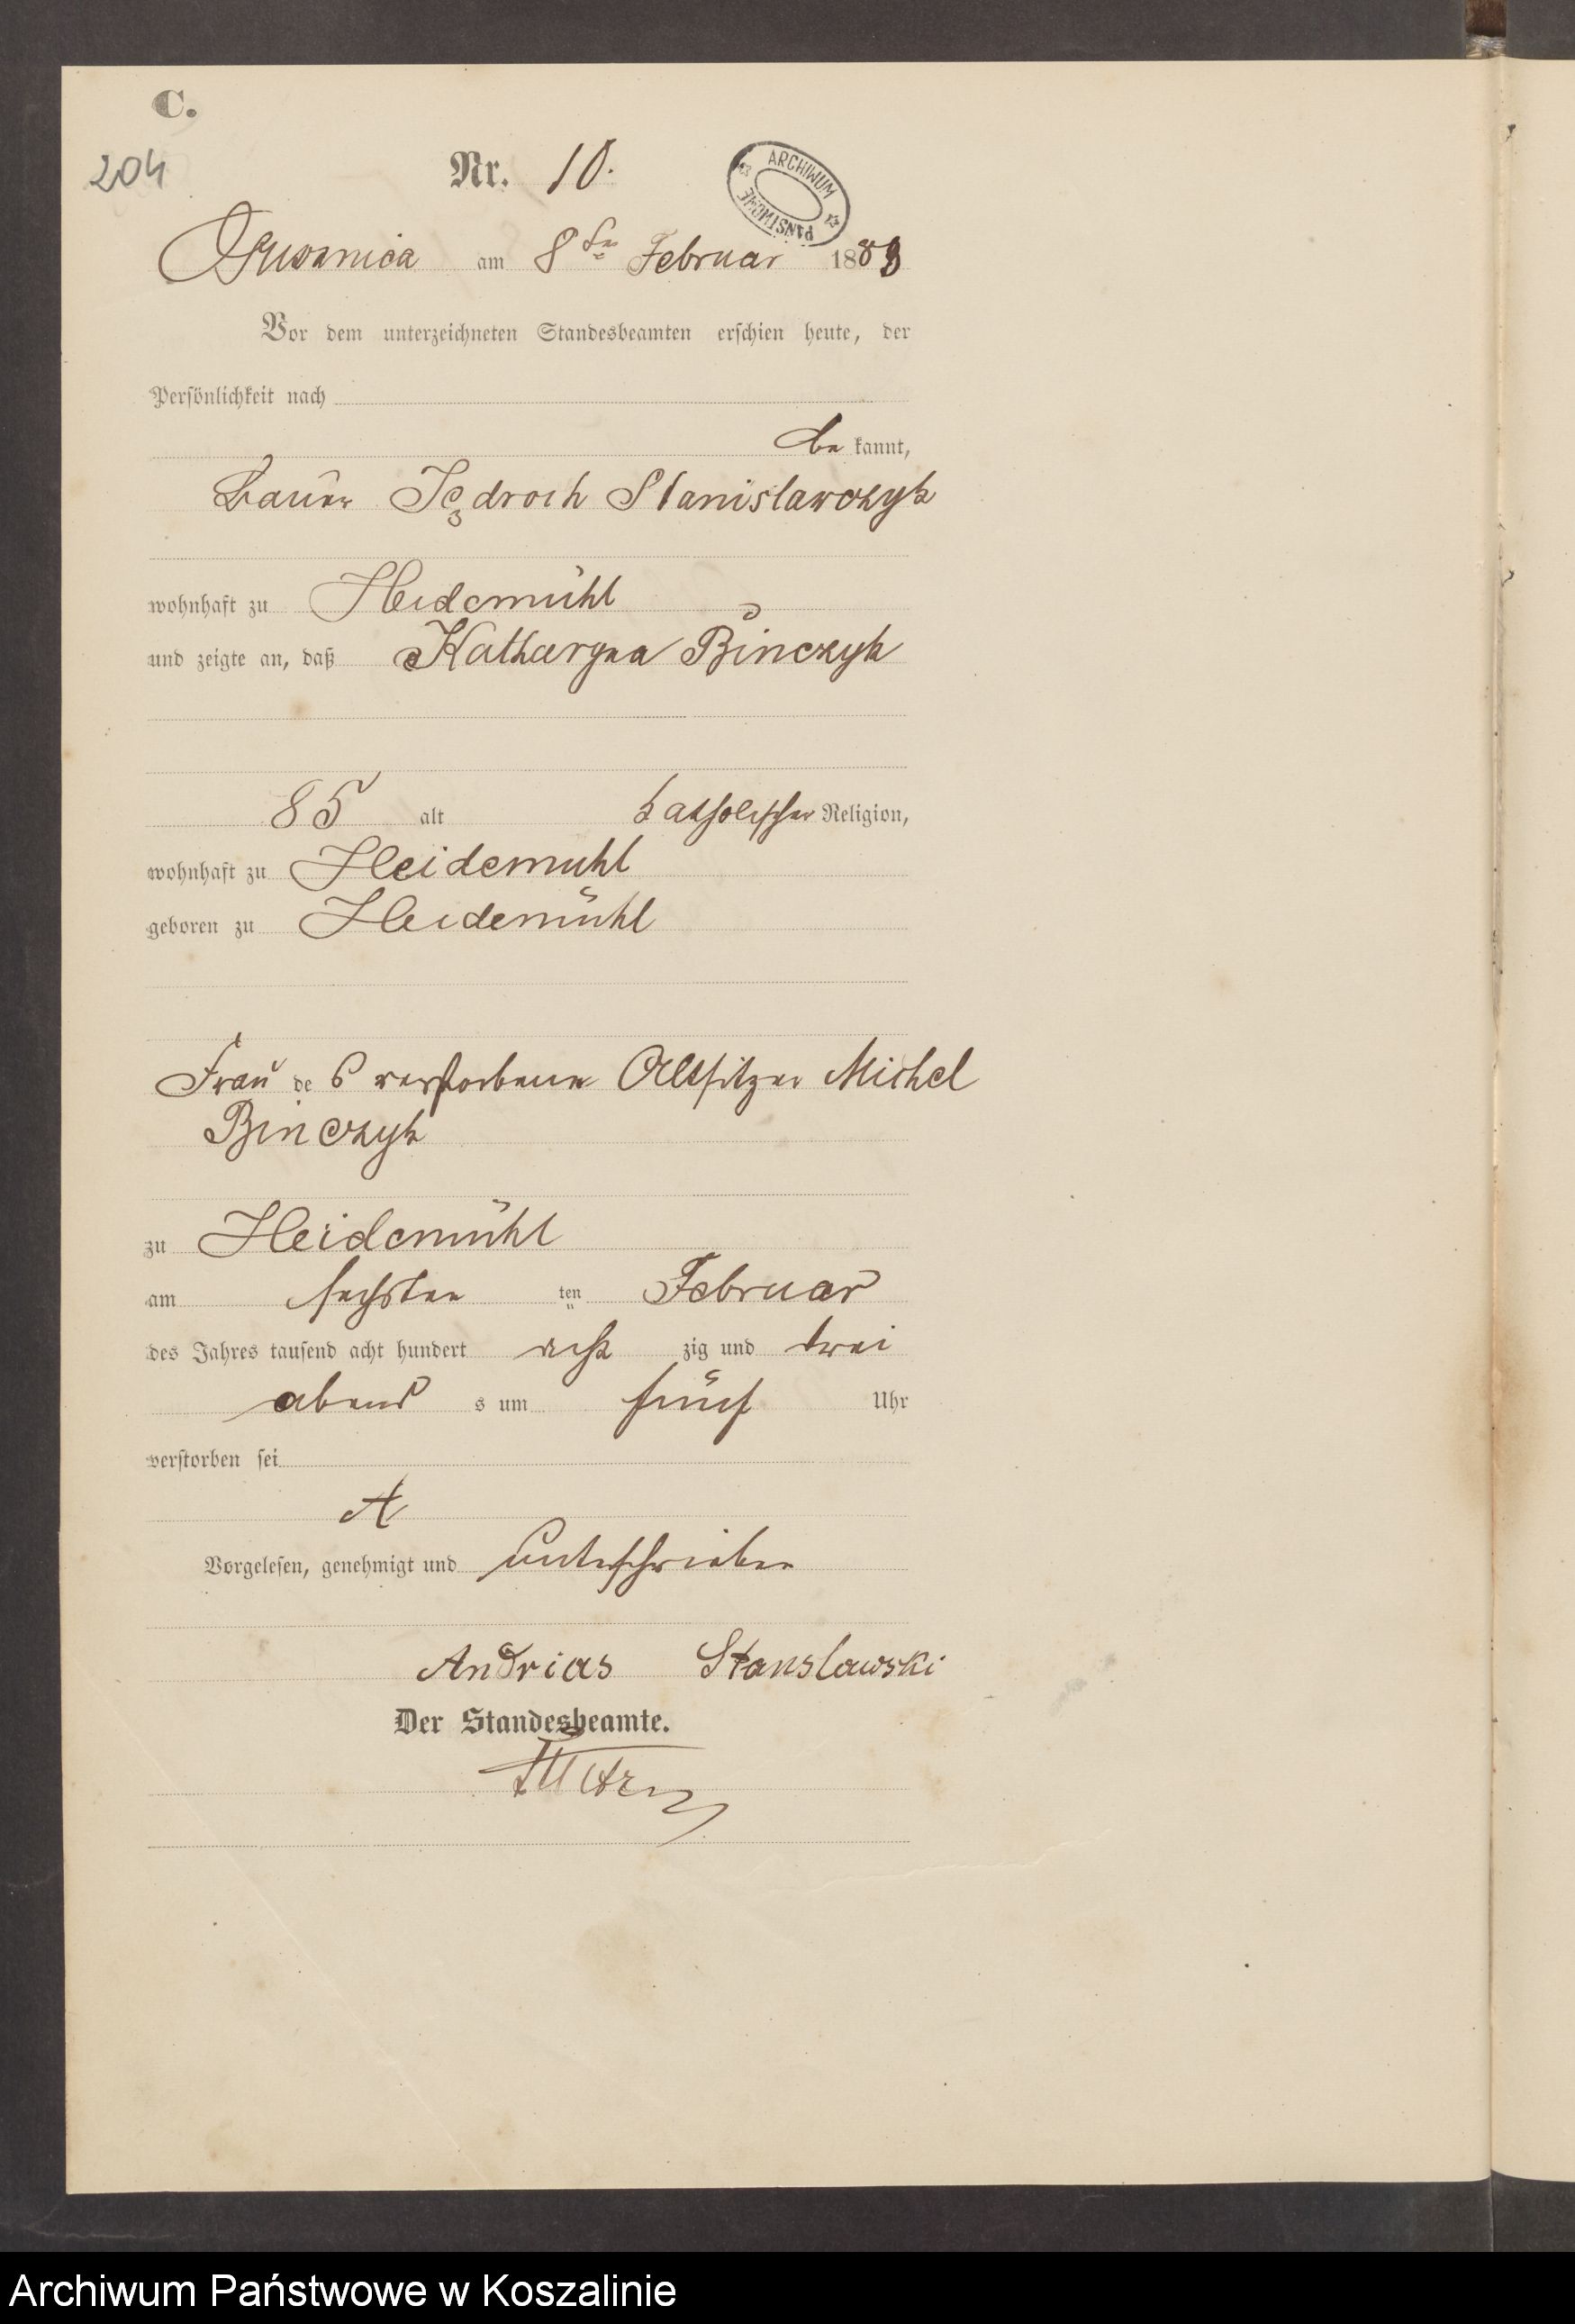 C.
204
Nr. 10.
ARCHIWUM PAŃSTWOWE
Ossusznica am 8ten Februar 1883
Vor dem unterzeichneten Standesbeamten erschien heute, der
Persönlichkeit nach
be kannt,
Bauer Jędroch Stanislawczyk
wohnhaft zu Heidemühl
und zeigte an, daß Katharyna Binczyk
85 alt katholischer Religion,
wohnhaft zu Heidemuhl
geboren zu Heidemühl
Frau des verstorbenen Altsitzer Michel
Binczyk
zu Heidemühl
am sechsten ten Februar
des Jahres tausend acht hundert acht zig und drei
abend s um fünf Uhr
verstorben sei
Vorgelesen, genehmigt und unterschrieben
Andrias Stanslawski
Der Standesbeamte.
Archiwum Państwowe w Koszalinie